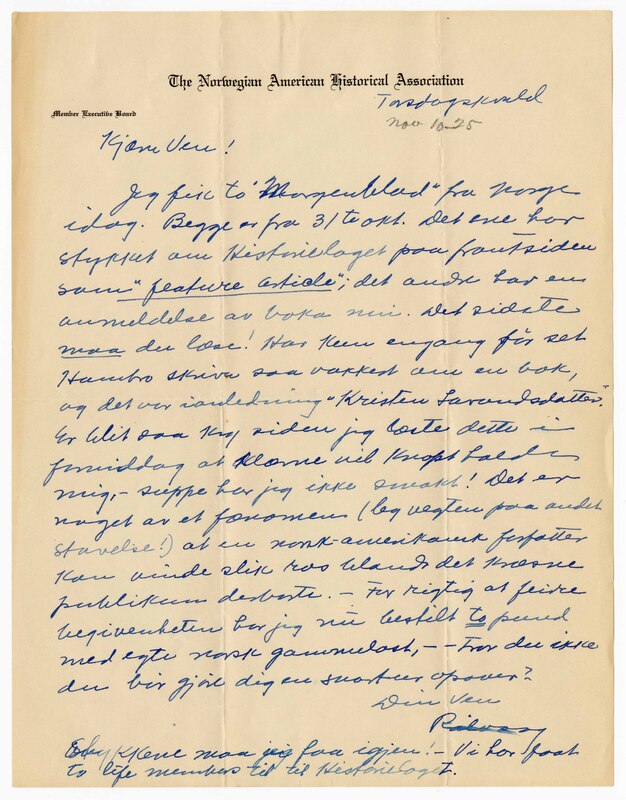 The Norwegian American Historical Association
Torsdagskveld
Nov 10-25
Member Executive Board
Kjære Ven!
Jeg fik to "Morgenblad" fra Norge
idag. Begge er fra 31te okt. Det ene har
stykket om Historielaget paa frontsiden
som "feature article"; det andre har en
anmeldelse av boka min. Det sidste
maa du læse! Har kun engang før set
Hambro skrive saa vakkert om en bok,
og det var i anledning "Kristin Lavransdatter".
Er blit saa kry siden jeg læste dette i
formiddag at klærne vil knapt holde
mig,- suppe har jeg ikke smakt! Det er
noget av et fænomen (læg vegten paa andet
stavelse!) at en norsk-amerikansk forfatter
kan vinde slik ros blandt det kræsne
publikum derborte. - For rigtig at feire
begivenheten har jeg nu bestilt to pund
med egte norsk gammelost, - - Tror du ikke
du bør gjøre dig en snartur opover?
Din Ven
Rølvaag
Stykkene maa jeg faa igjen! - Vi har faat
to life members til til Historielaget.